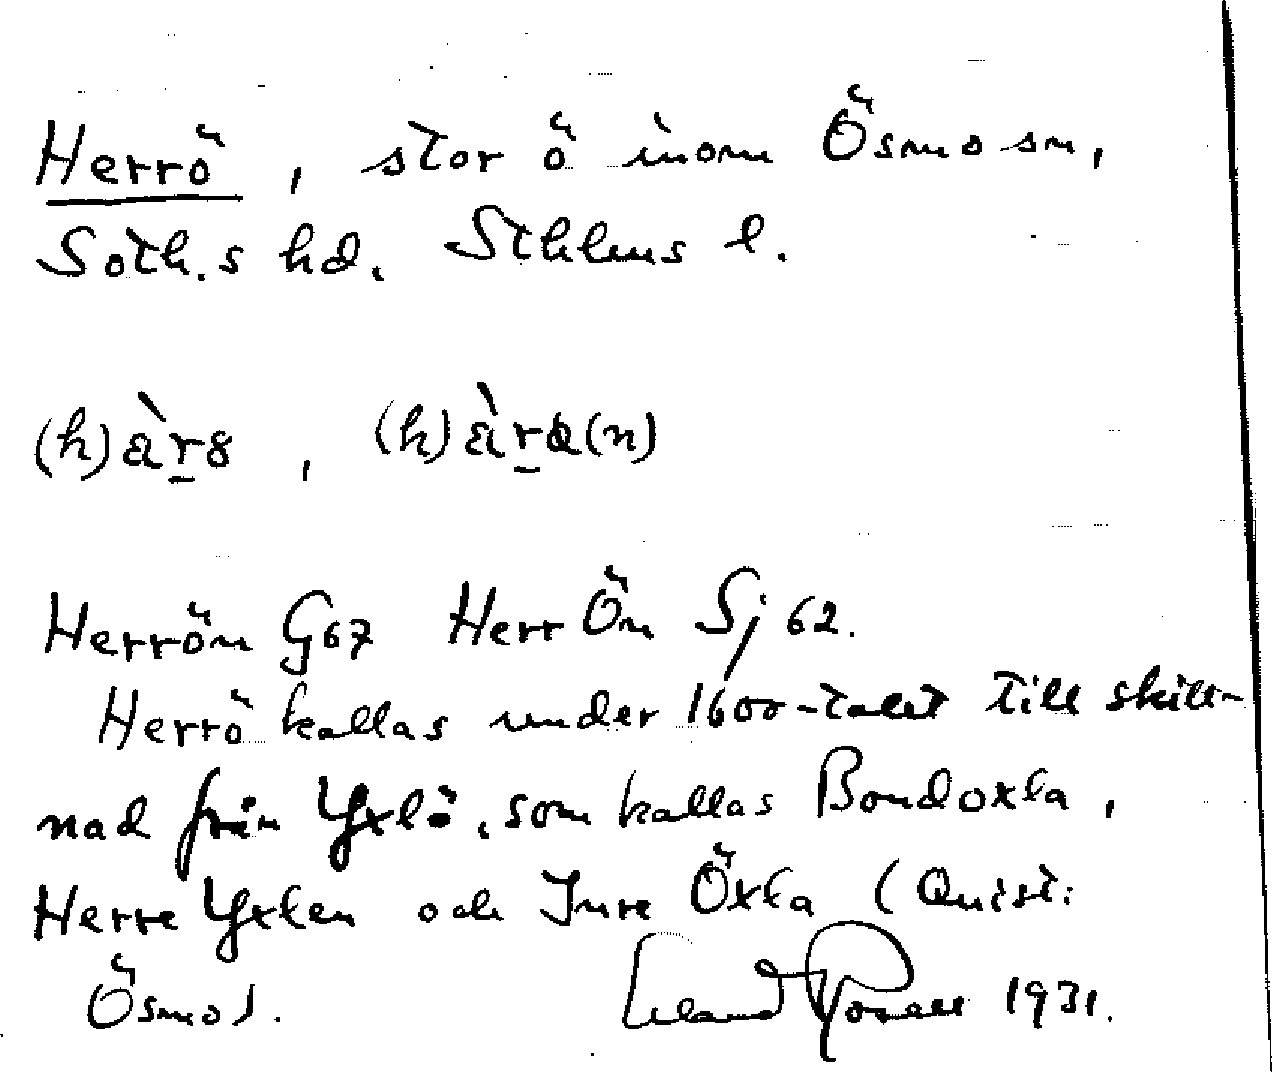 Herrö, stor ö inom Ösmo sn,
Soth.s hd. Sthlms l.
(h)är8, (h)ära(n)
Herrön G67 Herr Ön Sj 62.
Herrö kallas under 1600-talet till skill-
nad från Yxlö, som kallas Bondoxla,
Herre Yxlen och Inre Öxla (Quist:
Ösmo).
Erland Rosell 1931.